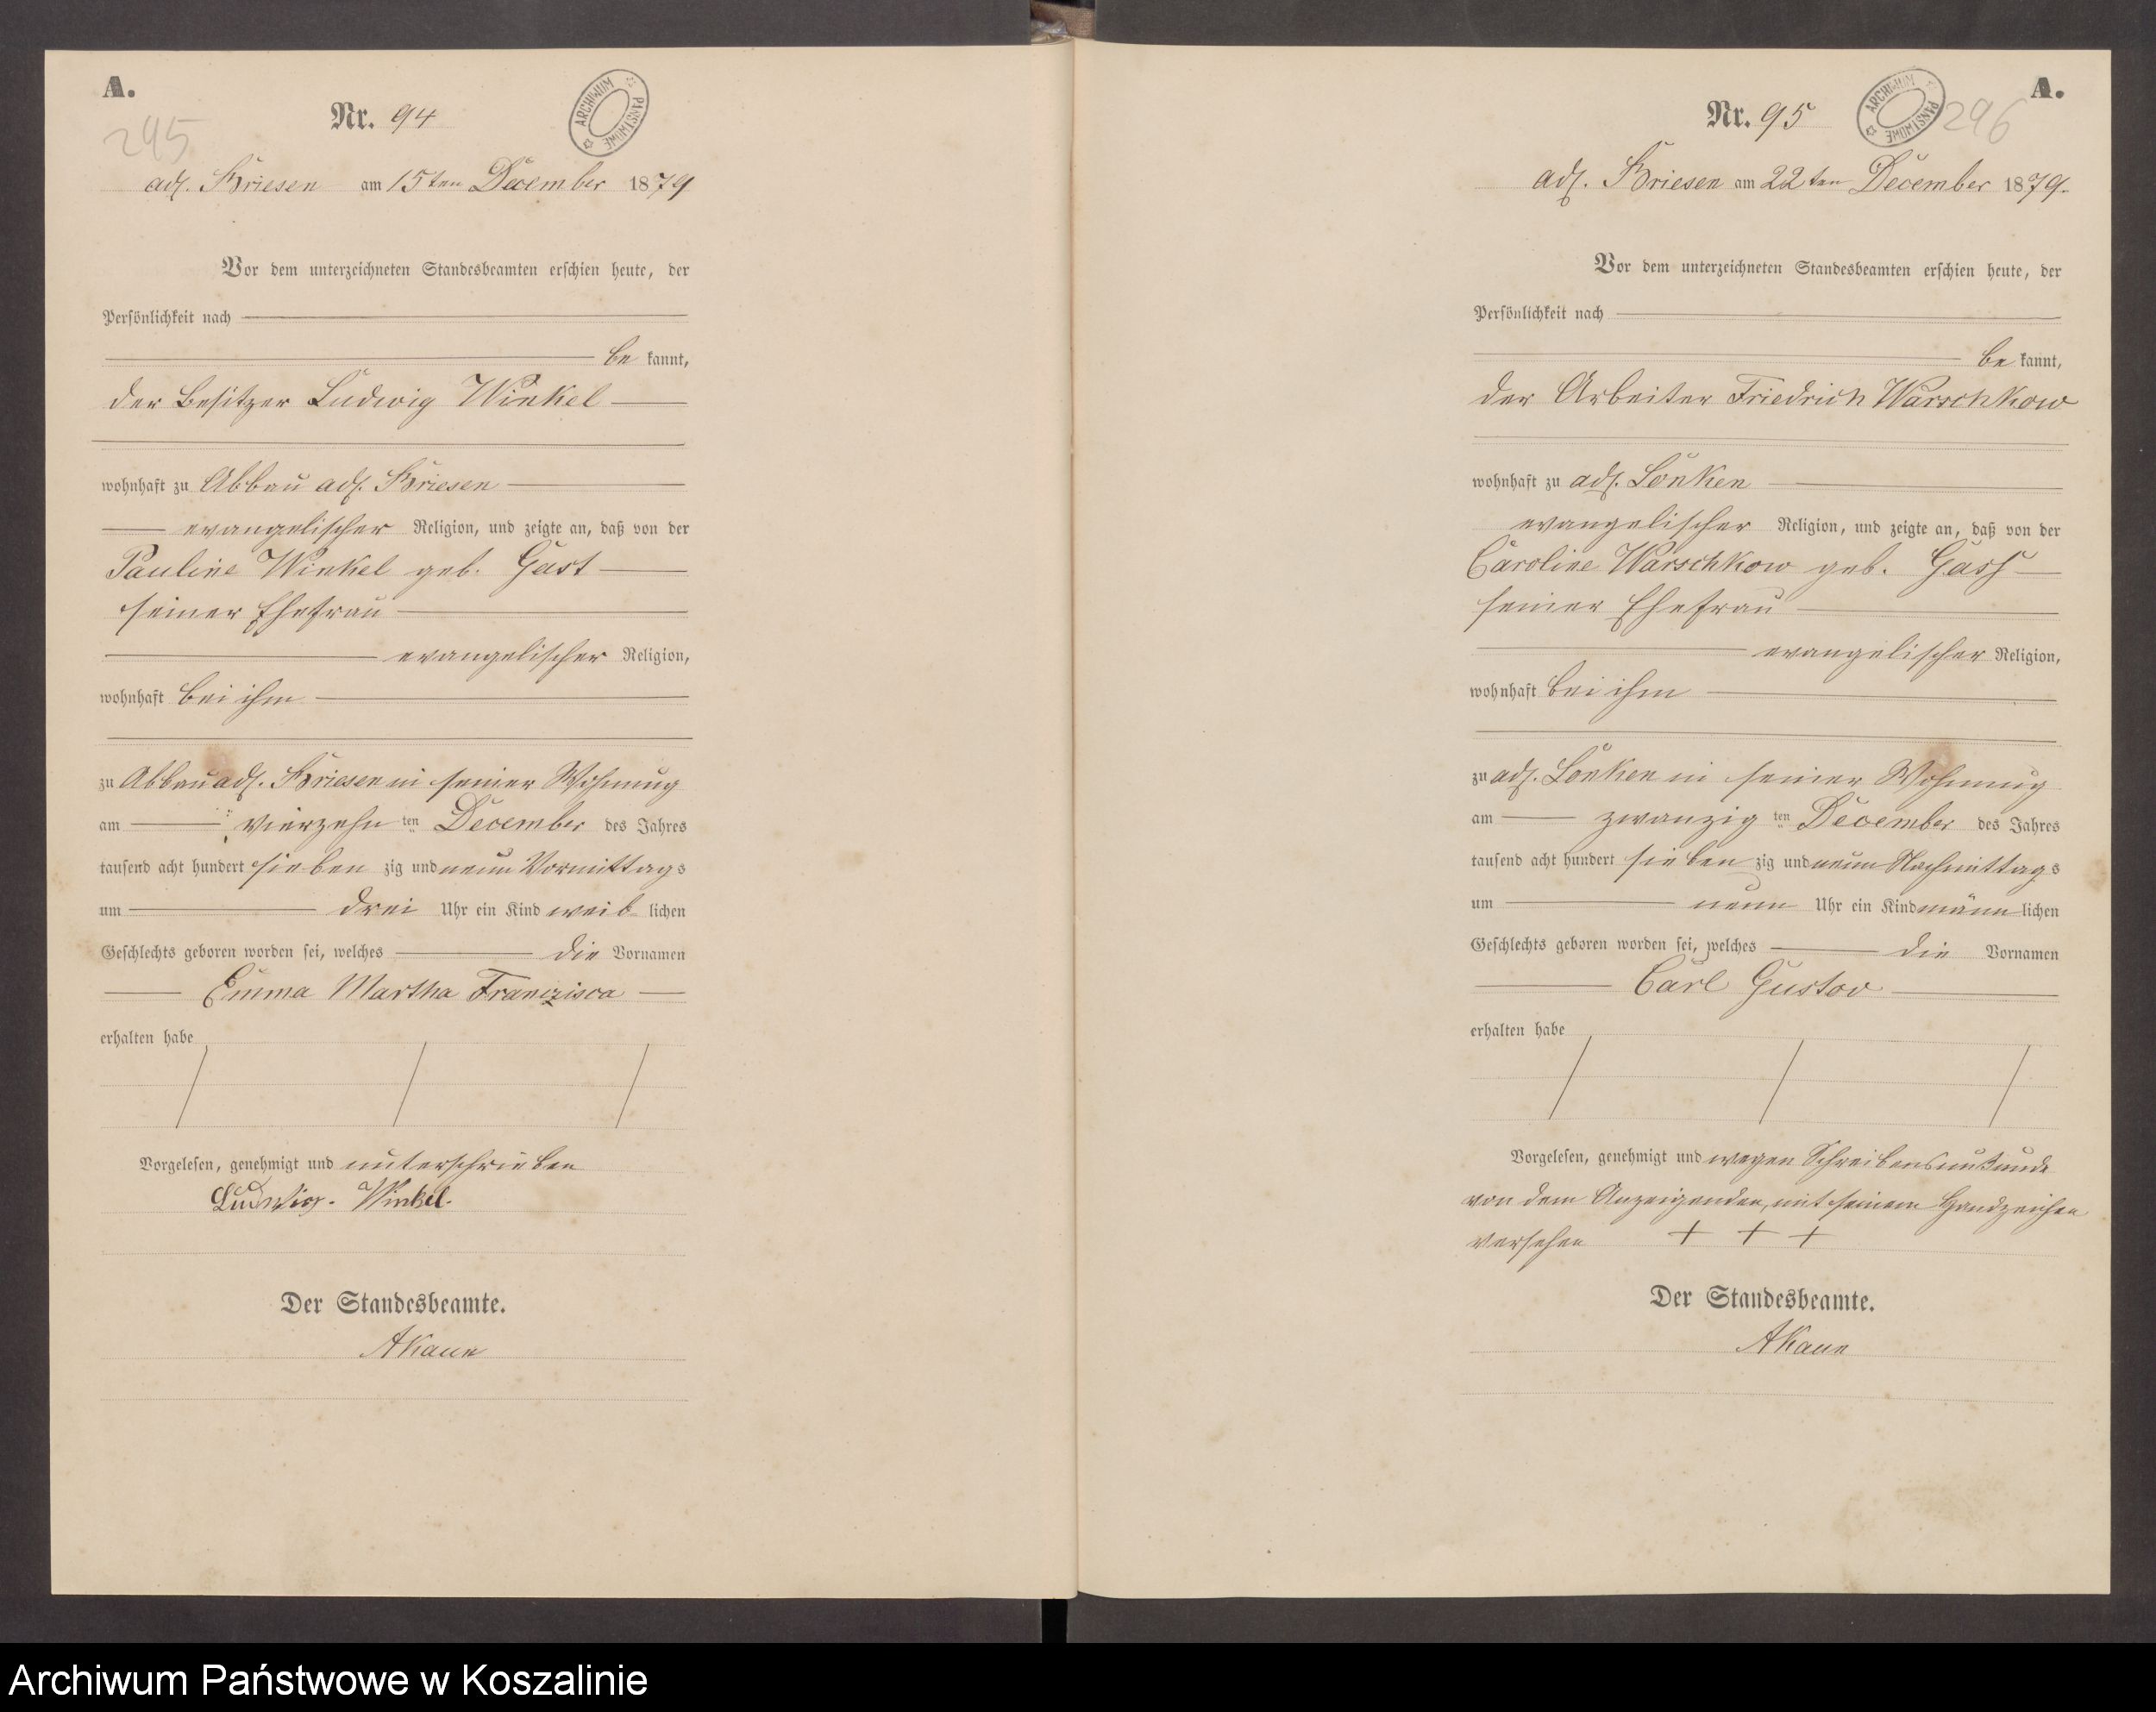 A.
Nr. 94
ARCHIWUM PAŃSTWOWE
245
adl. Briesen am 15ten December 1879
Vor dem unterzeichneten Standesbeamten erschien heute, der
Persönlichkeit nach
be kannt,
der Besitzer Ludwig Winkel
wohnhaft zu Abbau adl. Briesen
evangelischer Religion, und zeigte an, daß von der
Pauline Winkel geb. Gast
seiner Ehefrau
evangelischer Religion,
wohnhaft bei ihm
zu Abbau adl. Briesen in seiner Wohnung
am vierzehn ten December des Jahres
tausend acht hundert sieben zig und neun Vormittags
um drei Uhr ein Kind weib lichen
Geschlechts geboren worden sei, welches die Vornamen
Emma Martha Francizisca
erhalten habe
Vorgelesen, genehmigt und unterschrieben
Ludwig. Winkel.
Der Standesbeamte.
AKaun
A.
Nr. 95
ARCHIWUM PAŃSTWOWE
246
adl. Briesen am 22ten December 1879.
Vor dem unterzeichneten Standesbeamten erschien heute, der
Persönlichkeit nach
be kannt,
der Arbeiter Friedrich Warschkow
wohnhaft zu adl. Lonken
evangelischer Religion, und zeigte an, daß von der
Caroline Warschkow geb. Gass
seiner Ehefrau
evangelischer Religion,
wohnhaft bei ihm
zu adl. Lonken in seiner Wohnung
am zwanzig ten December des Jahres
tausend acht hundert sieben zig und neun Nachmittags
um neun Uhr ein Kind männ lichen
Geschlechts geboren worden sei, welches die Vornamen
Carl Gustav
erhalten habe
Vorgelesen, genehmigt und wegen Schreibensunkunde
von dem Anzeigenden, mit seinem Handzeichen
versehen + + +
Der Standesbeamte.
AKaun
Archiwum Państwowe w Koszalinie